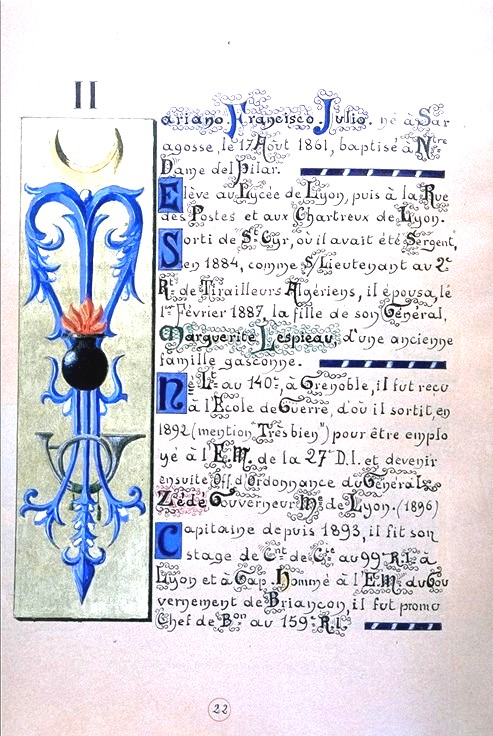 II
ariano. Francisco. Julio. né à Sar
agosse, le 17 Août 1861, baptisé à Ntre
Dame del Pilar.
Elève au Lycée de Lyon, puis à la Rue
des Postes et aux Chartreux de Lyon.
Sorti de St Cyr, où il avait été Sergent,
en 1884, comme S/Lieutenant au 2e
Rt de Tirailleurs Algériens, il épousa, le
1er Février 1887, la fille de son Général,
Marguerite Lespieau, d'une ancienne
famille gasconne.
Né Lt au 140e, à Grenoble, il fut reçu
à l'Ecole de Guerre, d'où il sortit, en
1892 (mention "Très bien") pour être emplo
yé à l'E.M. de la 27e D.I. et devenir
ensuite Off. d'Ordonnance du Général
Zédé Gouverneur Mre de Lyon. (1896)
Capitaine depuis 1893, il fit son
stage de Cnt de Cie au 99e R.I. à
Lyon et à Gap. Nommé à l'E.M. du Gou
vernement de Briançon, il fut promu
Chef de Bon au 159e R.I.
22